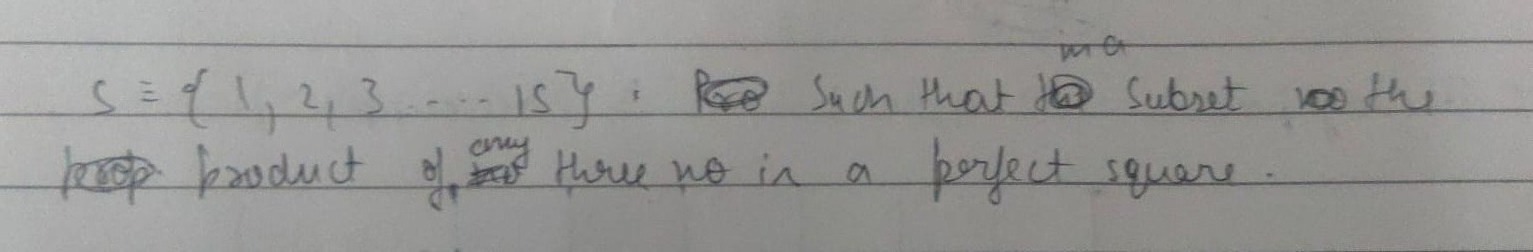 in a
S ≡ {1, 2, 3 .... 15} : Such that subset the
product of any three no in a perfect square.